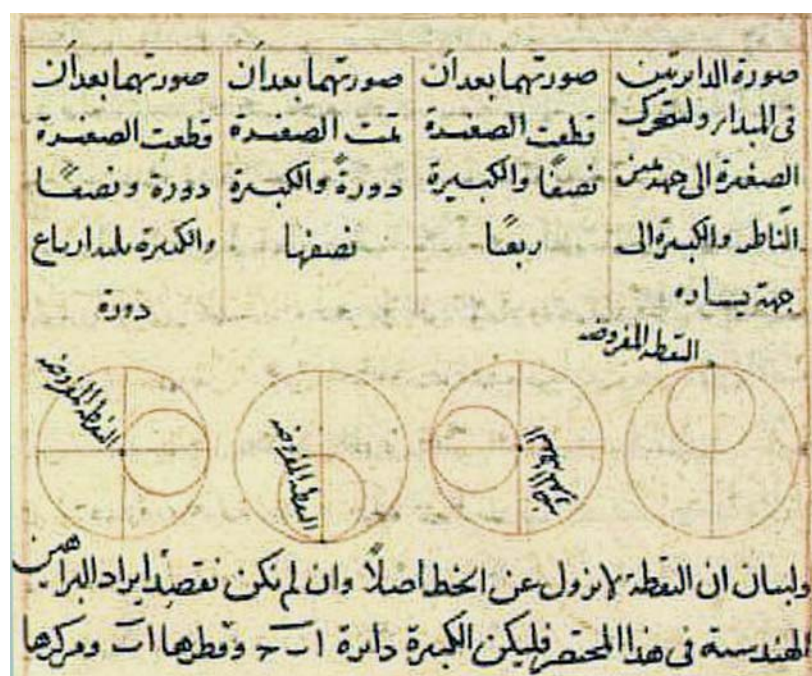 صورة الدائرتين
فى المبدا ولتتحرك
الصغيرة الى جهة يمين
الناظر والكبيرة الى
جهة يساره
صورتهما بعد أن
قطعت الصغيرة
نصفًا والكبيرة
ربعًا
صورتهما بعد أن
تمت الصغيرة
دورةً والكبيرة
نصفها
صورتهما بعد أن
قطعت الصغيرة
دورة ونصفًا
والكبيرة ثلثة ارباع
دورة
النقطة المفروضة
النقطة المفروضة
النقطة المفروضة
ولبيان ان النقطة لا تزول عن الخط اصلاً وان لم نكن نقصد ايراد البراهين
الهندسية فى هذا المختصر فليكن الكبيرة دائرة اب حـ وقطرها اب ومركزها